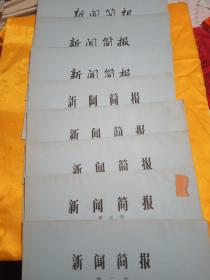 新闻简报
新闻简报
新闻简报
新闻简报
新闻简报
新闻简报
新闻简报
新闻简报